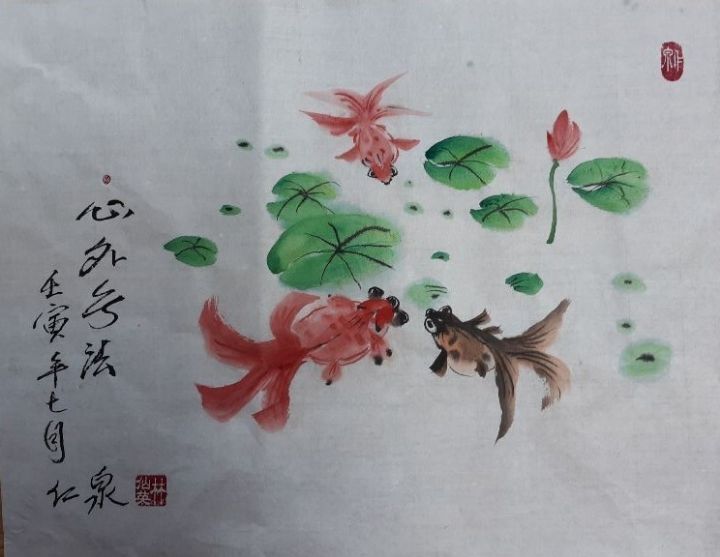 心外无法
壬寅年七月
仁泉